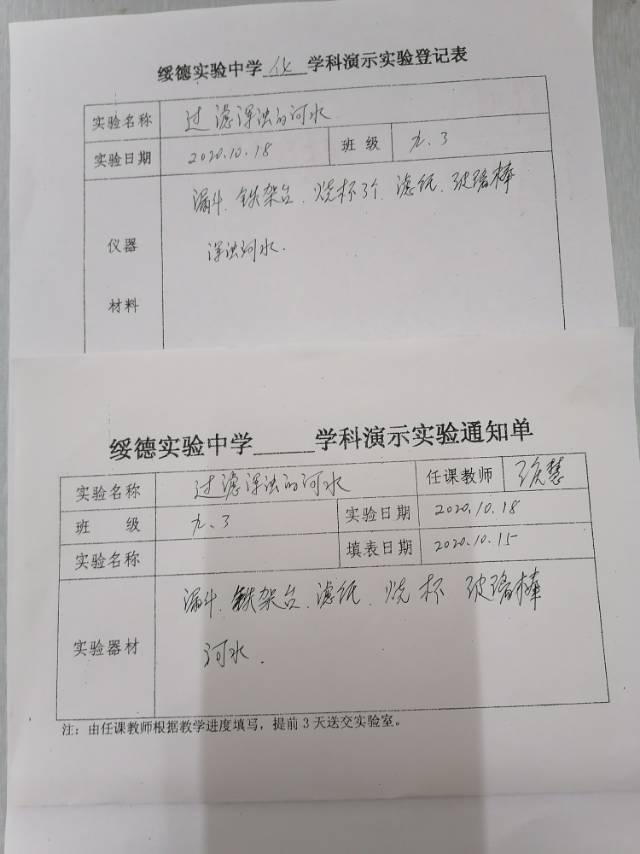 绥德实验中学 化 学科演示实验登记表
实验名称 过滤浑浊的河水
实验日期 2020.10.18 班级 九.3
仪器 材料 漏斗.铁架台.烧杯3个.滤纸.玻璃棒
浑浊河水.
绥德实验中学_____学科演示实验通知单
实验名称 过滤浑浊的河水 任课教师
班 级 九.3 实验日期 2020.10.18
实验名称 填表日期 2020.10.15
实验器材 漏斗.铁架台.滤纸.烧杯 玻璃棒
河水.
注：由任课教师根据教学进度填写，提前3天送交实验室。